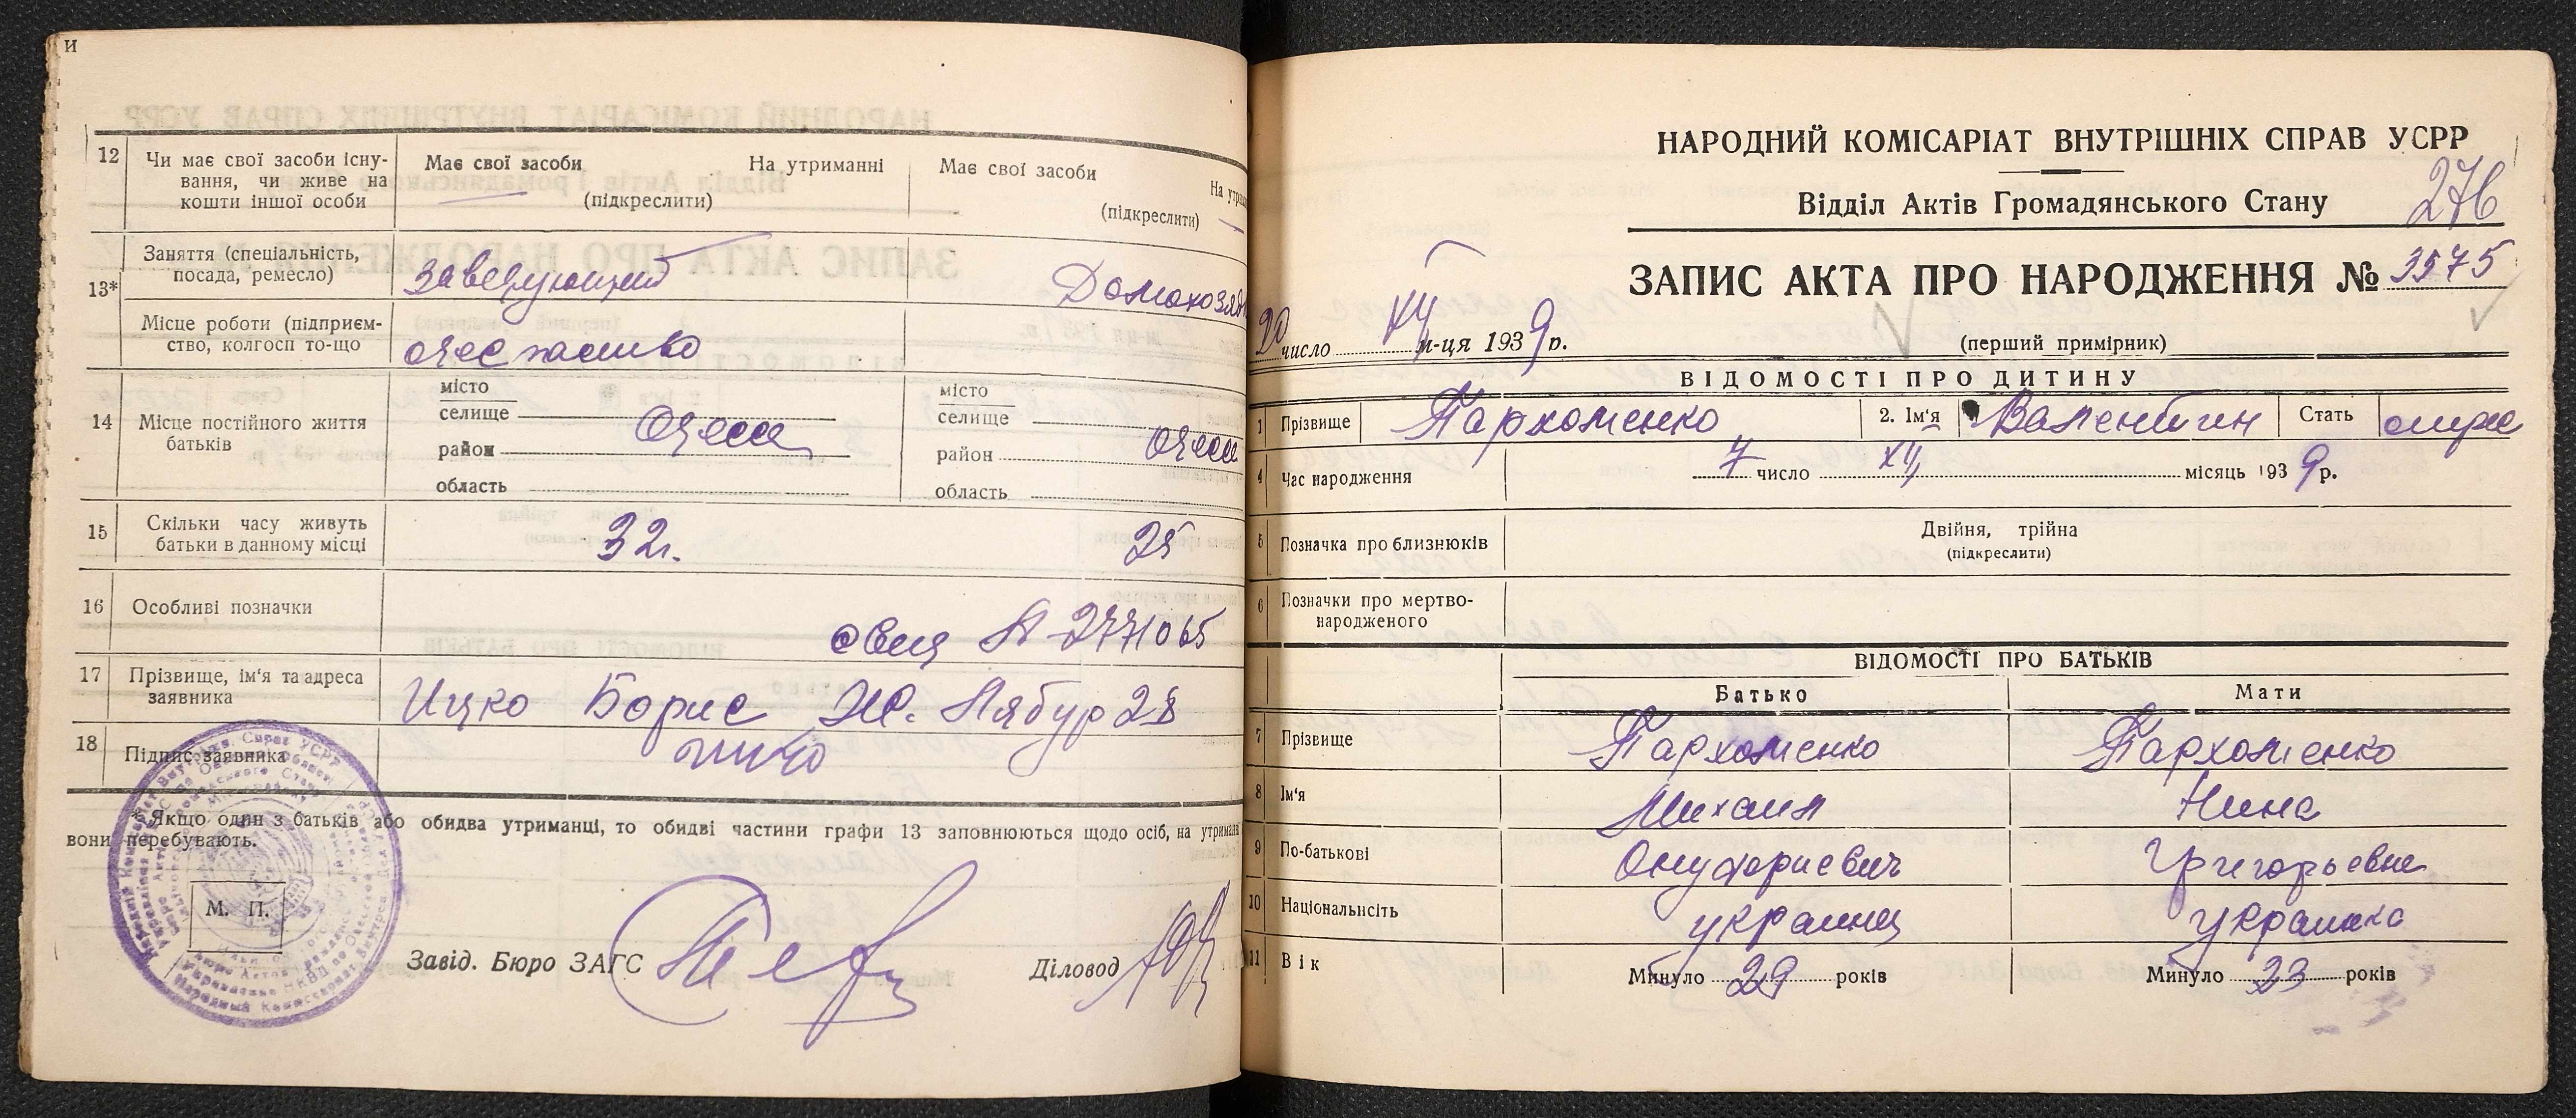 И
12 Чи має свої засоби існу-
вання, чи живе на
кошти іншої особи
Має свої засоби На утриманні
(підкреслити)
Має свої засоби На утрима
(підкреслити)
13* Заняття (спеціальність,
посада, ремесло)
заведующий
Домохозяй
Місце роботи (підприєм-
ство, колгосп то-що
14 Місце постійного життя
батьків
місто
селище
район
область
Одесса
місто
селище
район
область
Одесса
15 Скільки часу живуть
батьки в данному місці
32 г.
25
16 Особливі позначки
17 Прізвище, ім'я та адреса
заявника
Ицко Борис
28
18 Підпис заявника
* Якщо один з батьків або обидва утриманці, то обидві частини графи 13 заповнюються щодо осіб, на утриман
вони перебувають.
М. П.
Завід. Бюро ЗАГС
Діловод
НАРОДНИЙ КОМІСАРІАТ ВНУТРІШНІХ СПРАВ УСРР
Відділ Актів Громадянського Стану
276
ЗАПИС АКТА ПРО НАРОДЖЕННЯ № 3575
(перший примірник)
20 число XII м-ця 1939 р.
ВІДОМОСТІ ПРО ДИТИНУ
1 Прізвище Пархоменко 2. Ім'я Валентин Стать
4 Час народження 7 число XII місяць 1939 р.
5 Позначка про близнюків
Двійня, трійна
(підкреслити)
6 Позначки про мертво-
народженого
ВІДОМОСТІ ПРО БАТЬКІВ
Батько Мати
7 Прізвище Пархоменко Пархоменко
8 Ім'я Михаил Нина
9 По-батькові Онуфриевич Григорьевна
10 Національність украинец украинка
11 Вік Минуло 29 років Минуло 23 років